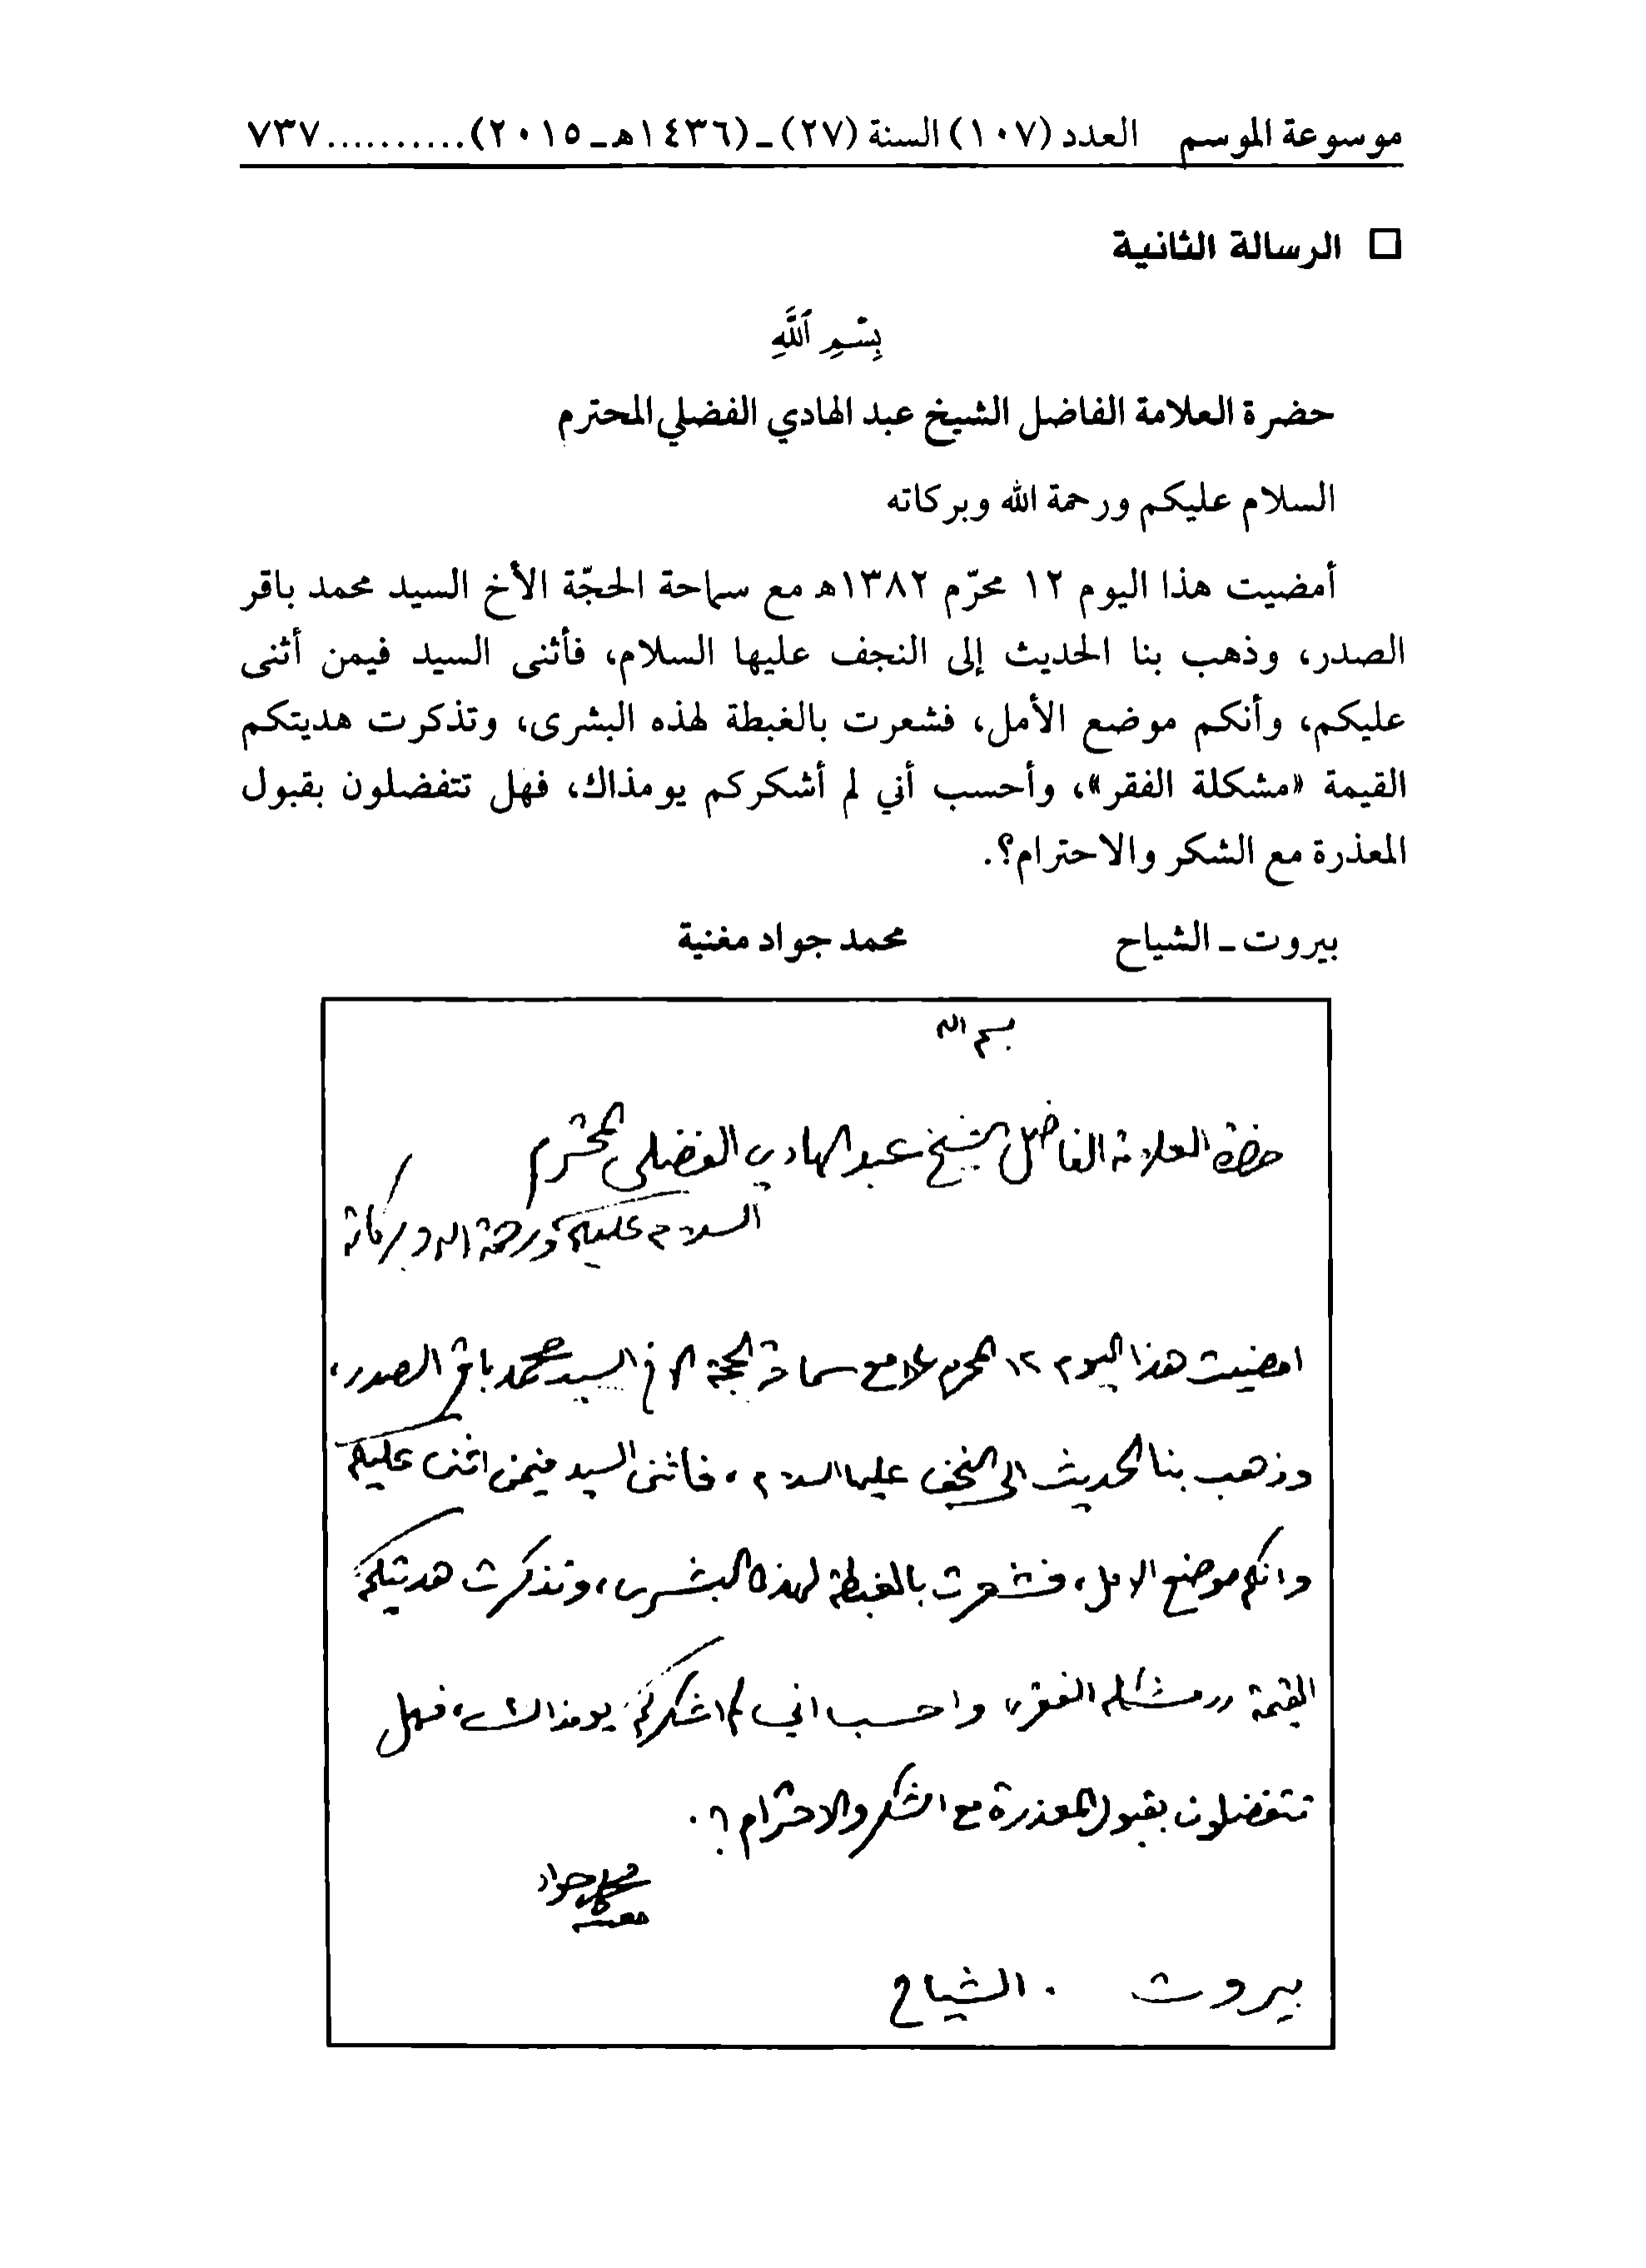 موسوعة الموسم العدد (١٠٧) السنة (٢٧) ـ (١٤٣٦هـ ـ ٢٠١٥) .......... ٧٣٧
□ الرسالة الثانية
بِسْمِ ٱللَّهِ
حضرة العلامة الفاضل الشيخ عبد الهادي الفضلي المحترم
السلام عليكم ورحمة الله وبركاته
أمضيت هذا اليوم ١٢ محرّم ١٣٨٢هـ مع سماحة الحجّة الأخ السيد محمد باقر
الصدر، وذهب بنا الحديث إلى النجف عليها السلام، فأثنى السيد فيمن أثنى
عليكم، وأنكم موضع الأمل، فشعرت بالغبطة لهذه البشرى، وتذكرت هديتكم
القيمة «مشكلة الفقر»، وأحسب أني لم أشكركم يومذاك، فهل تتفضلون بقبول
المعذرة مع الشكر والاحترام؟.
بيروت ـ الشياح محمد جواد مغنية
بسم الله
حضرة العلامة الفاضل الشيخ عبد الهادي الفضلي المحترم
السلام عليكم ورحمة الله وبركاته
امضيت هذا اليوم ١٢ المحرم مع سماحة الحجة الاخ السيد محمد باقر الصدر،
وذهب بنا الحديث الى النجف عليها السلام، فاثنى السيد فيمن اثنى عليكم
وانكم موضع الامل، فشعرت بالغبطة لهذه البشرى، وتذكرت هديتكم
القيمة «مشكلة الفقر» واحسب اني لم اشكركم يومذاك، فهل
تتفضلون بقبول المعذرة مع الشكر والاحترام؟.
محمد جواد
مغنيه
بيروت . الشياح